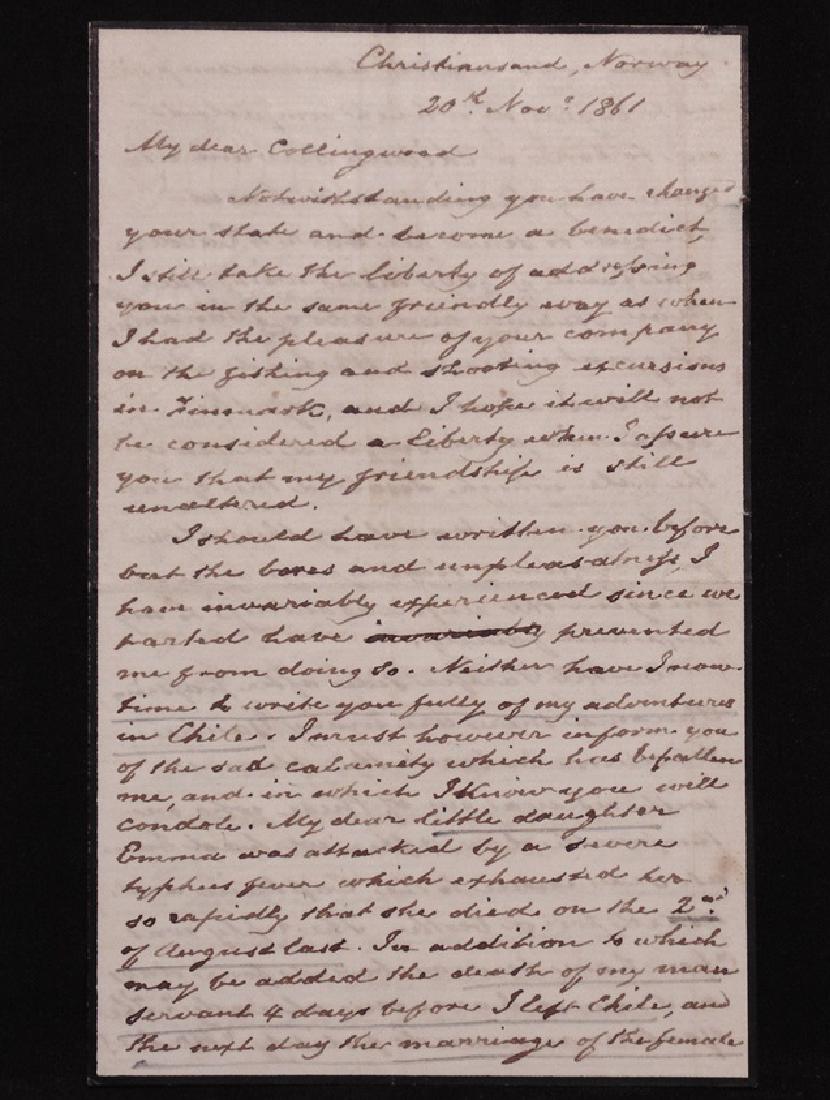 Christiansand, Norway
20th Novr 1861
My dear Collingwood
Notwithstanding you have changed
your state and become a benedict,
I still take the liberty of addressing
you in the same friendly way as when
I had the pleasure of your company
on the fishing and shooting excursions
in Finmark, and I hope it will not
be considered a liberty when I assure
you that my friendship is still
unaltered.
I should have written you before
but the bores and unpleasatness, I
have invariably experienced since we
parted have invariably prevented
me from doing so. Neither have I now
time to write you fully of my adventures
in Chile. I must however inform you
of the sad calamity which has befallen
me, and in which I know you will
condole. My dear little daughter
Emma was attacked by a severe
typhus fever which exhausted her
so rapidly that she died on the 2nd
of August last. In addition to which
may be added the death of my man
servant 4 days before I left Chile, and
the next day the marriage of the female